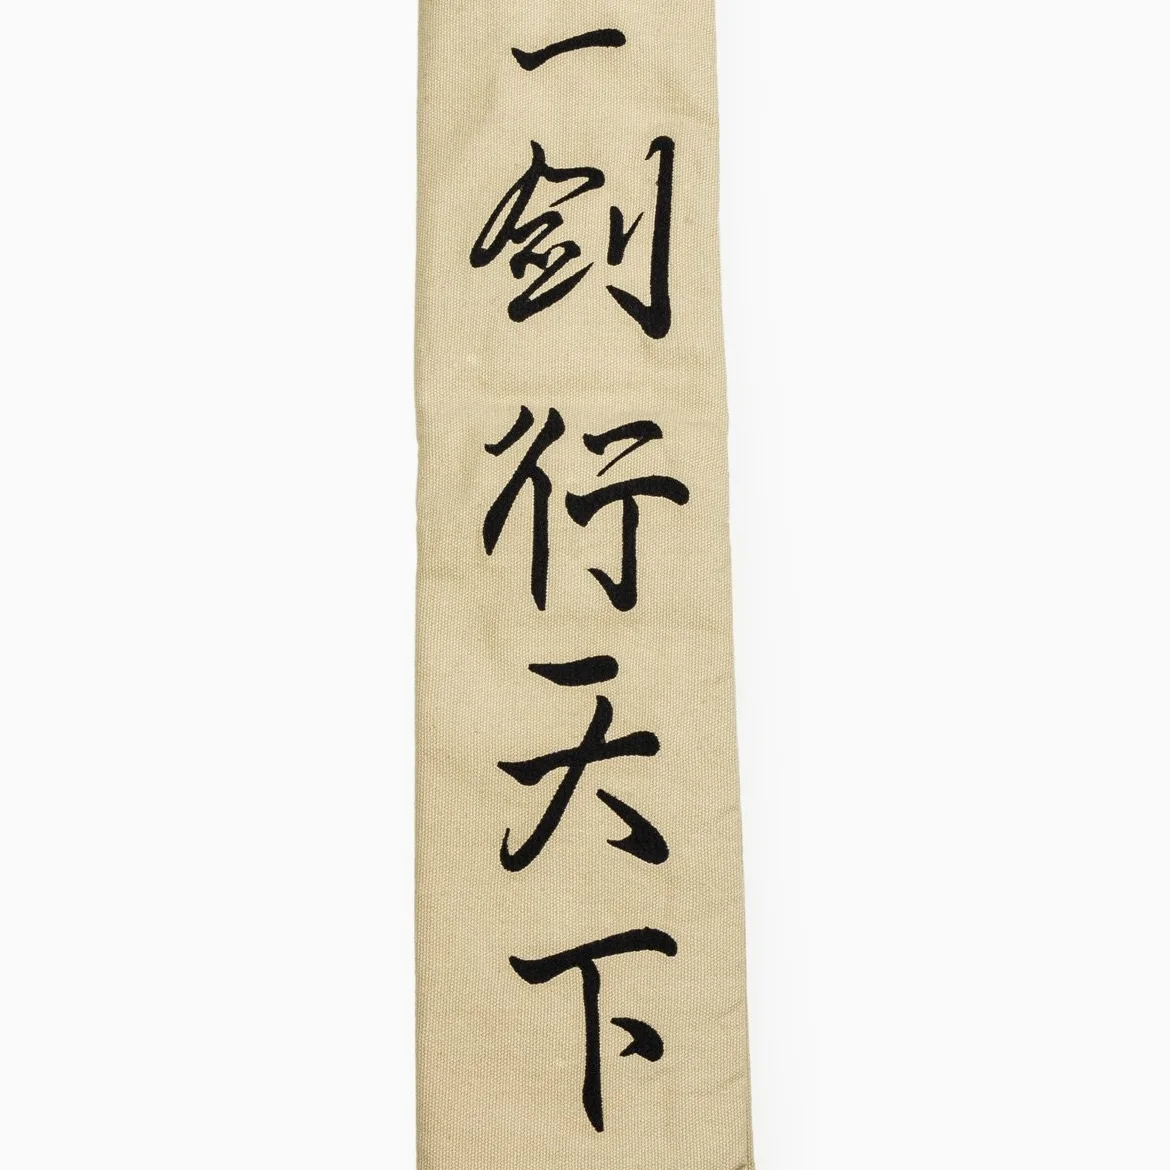 一剑行天下